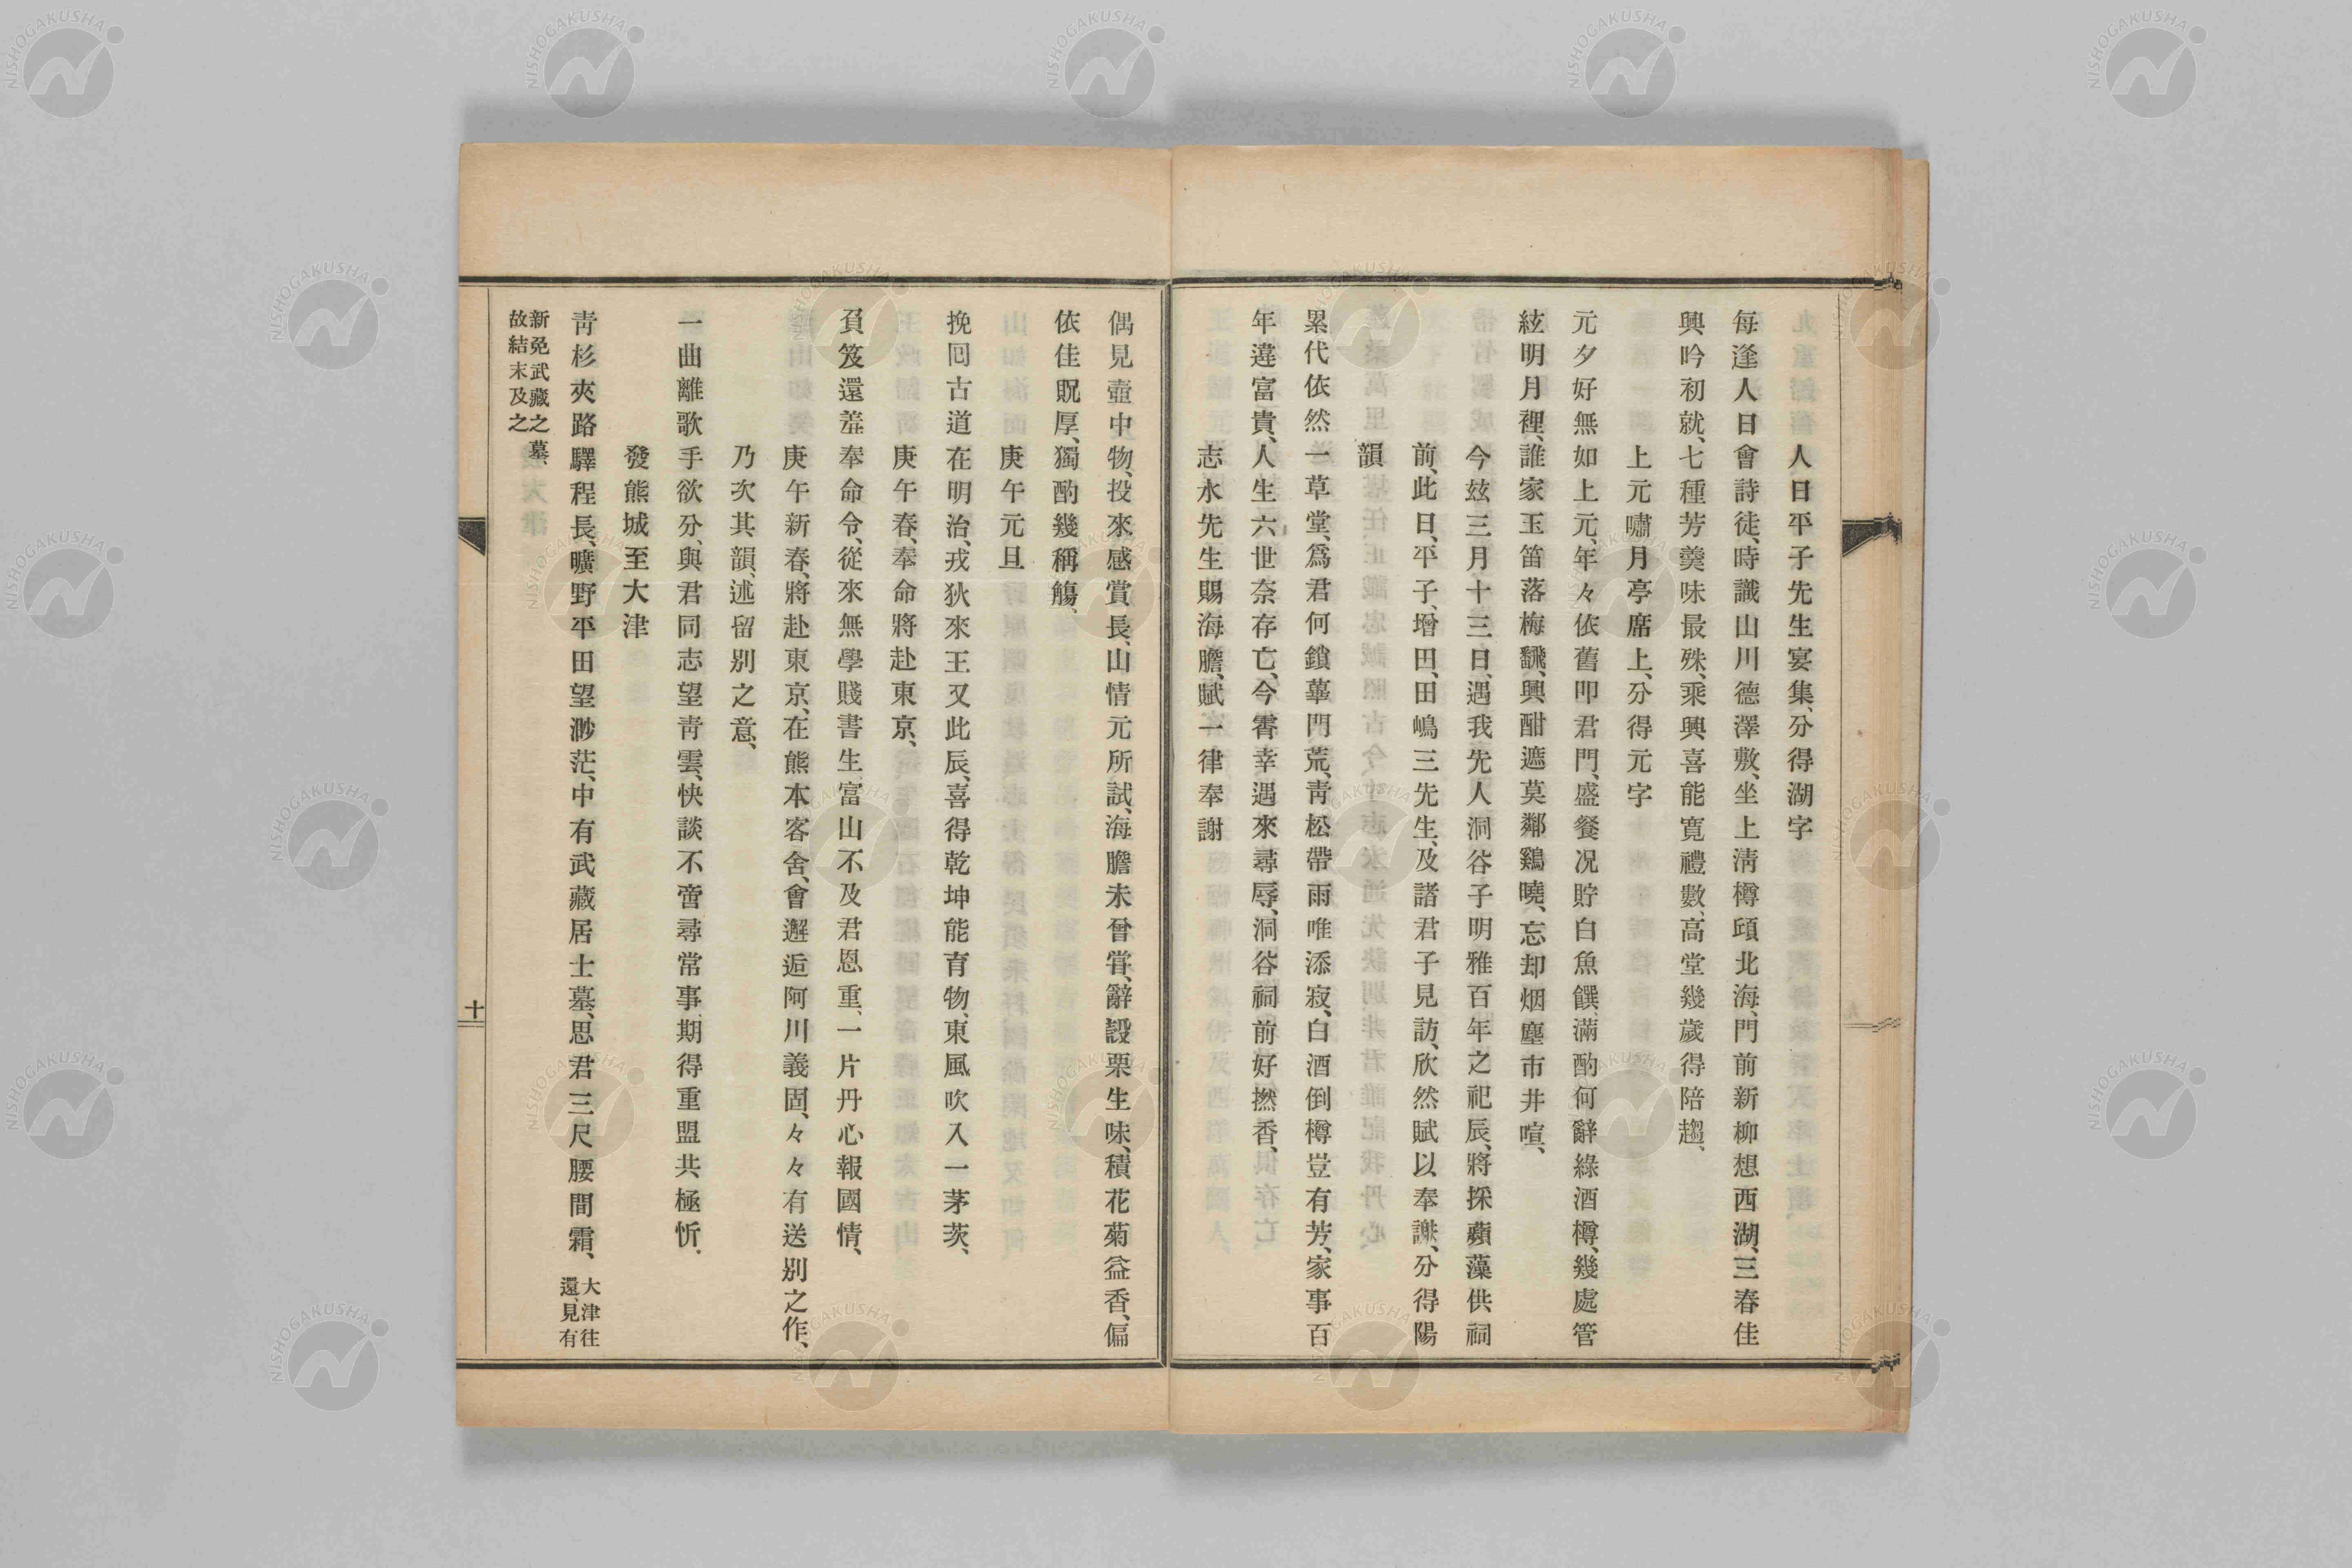 人日平子先生宴集、分得湖字
每逢人日會詩徒、時識山川德澤敷、坐上淸樽頊北海、門前新柳想西湖、三春佳
興吟初就、七種芳羹味最殊、乘興喜能寬禮數、高堂幾歲得陪趨、
上元嘯月亭席上、分得元字
元夕好無如上元、年々依舊叩君門、盛餐况貯白魚饌、滿酌何辭綠酒樽、幾處管
絃明月裡、誰家玉笛落梅飜、興酣遮莫鄰鷄曉、忘却烟塵市井喧、
今玆三月十三日、遇我先人洞谷子明雅百年之祀辰、將採蘋藻供祠
前、此日、平子、增田、田嶋三先生、及諸君子見訪、欣然賦以奉謝、分得陽
韻
累代依然一草堂、爲君何鎖蓽門荒、靑松帶雨唯添寂、白酒倒樽豈有芳、家事百
年違富貴、人生六世奈存亡、今霄幸遇來尋辱、洞谷祠前好撚香、
志水先生賜海膽、賦一律奉謝
偶見壺中物、投來感賞長、山情元所試、海膽未曾甞、辭設栗生味、積花菊益香、偏
依佳貺厚、獨酌幾稱觴、
庚午元旦
挽囘古道在明治、戎狄來王又此辰、喜得乾坤能育物、東風吹入一茅茨、
庚午春、奉命將赴東京、
負笈還羞奉命令、從來無學賤書生、富山不及君恩重、一片丹心報國情、
庚午新春、將赴東京、在熊本客舍、會邂逅阿川義固、々々有送別之作、
乃次其韻、述留別之意、
一曲離歌手欲分、與君同志望靑雲、快談不啻尋常事、期得重盟共極忻、
發熊城至大津
靑杉夾路驛程長、曠野平田望渺茫、中有武藏居士墓、思君三尺腰間霜、大津往
還、見有
新免武藏之墓、
故結末及之
十